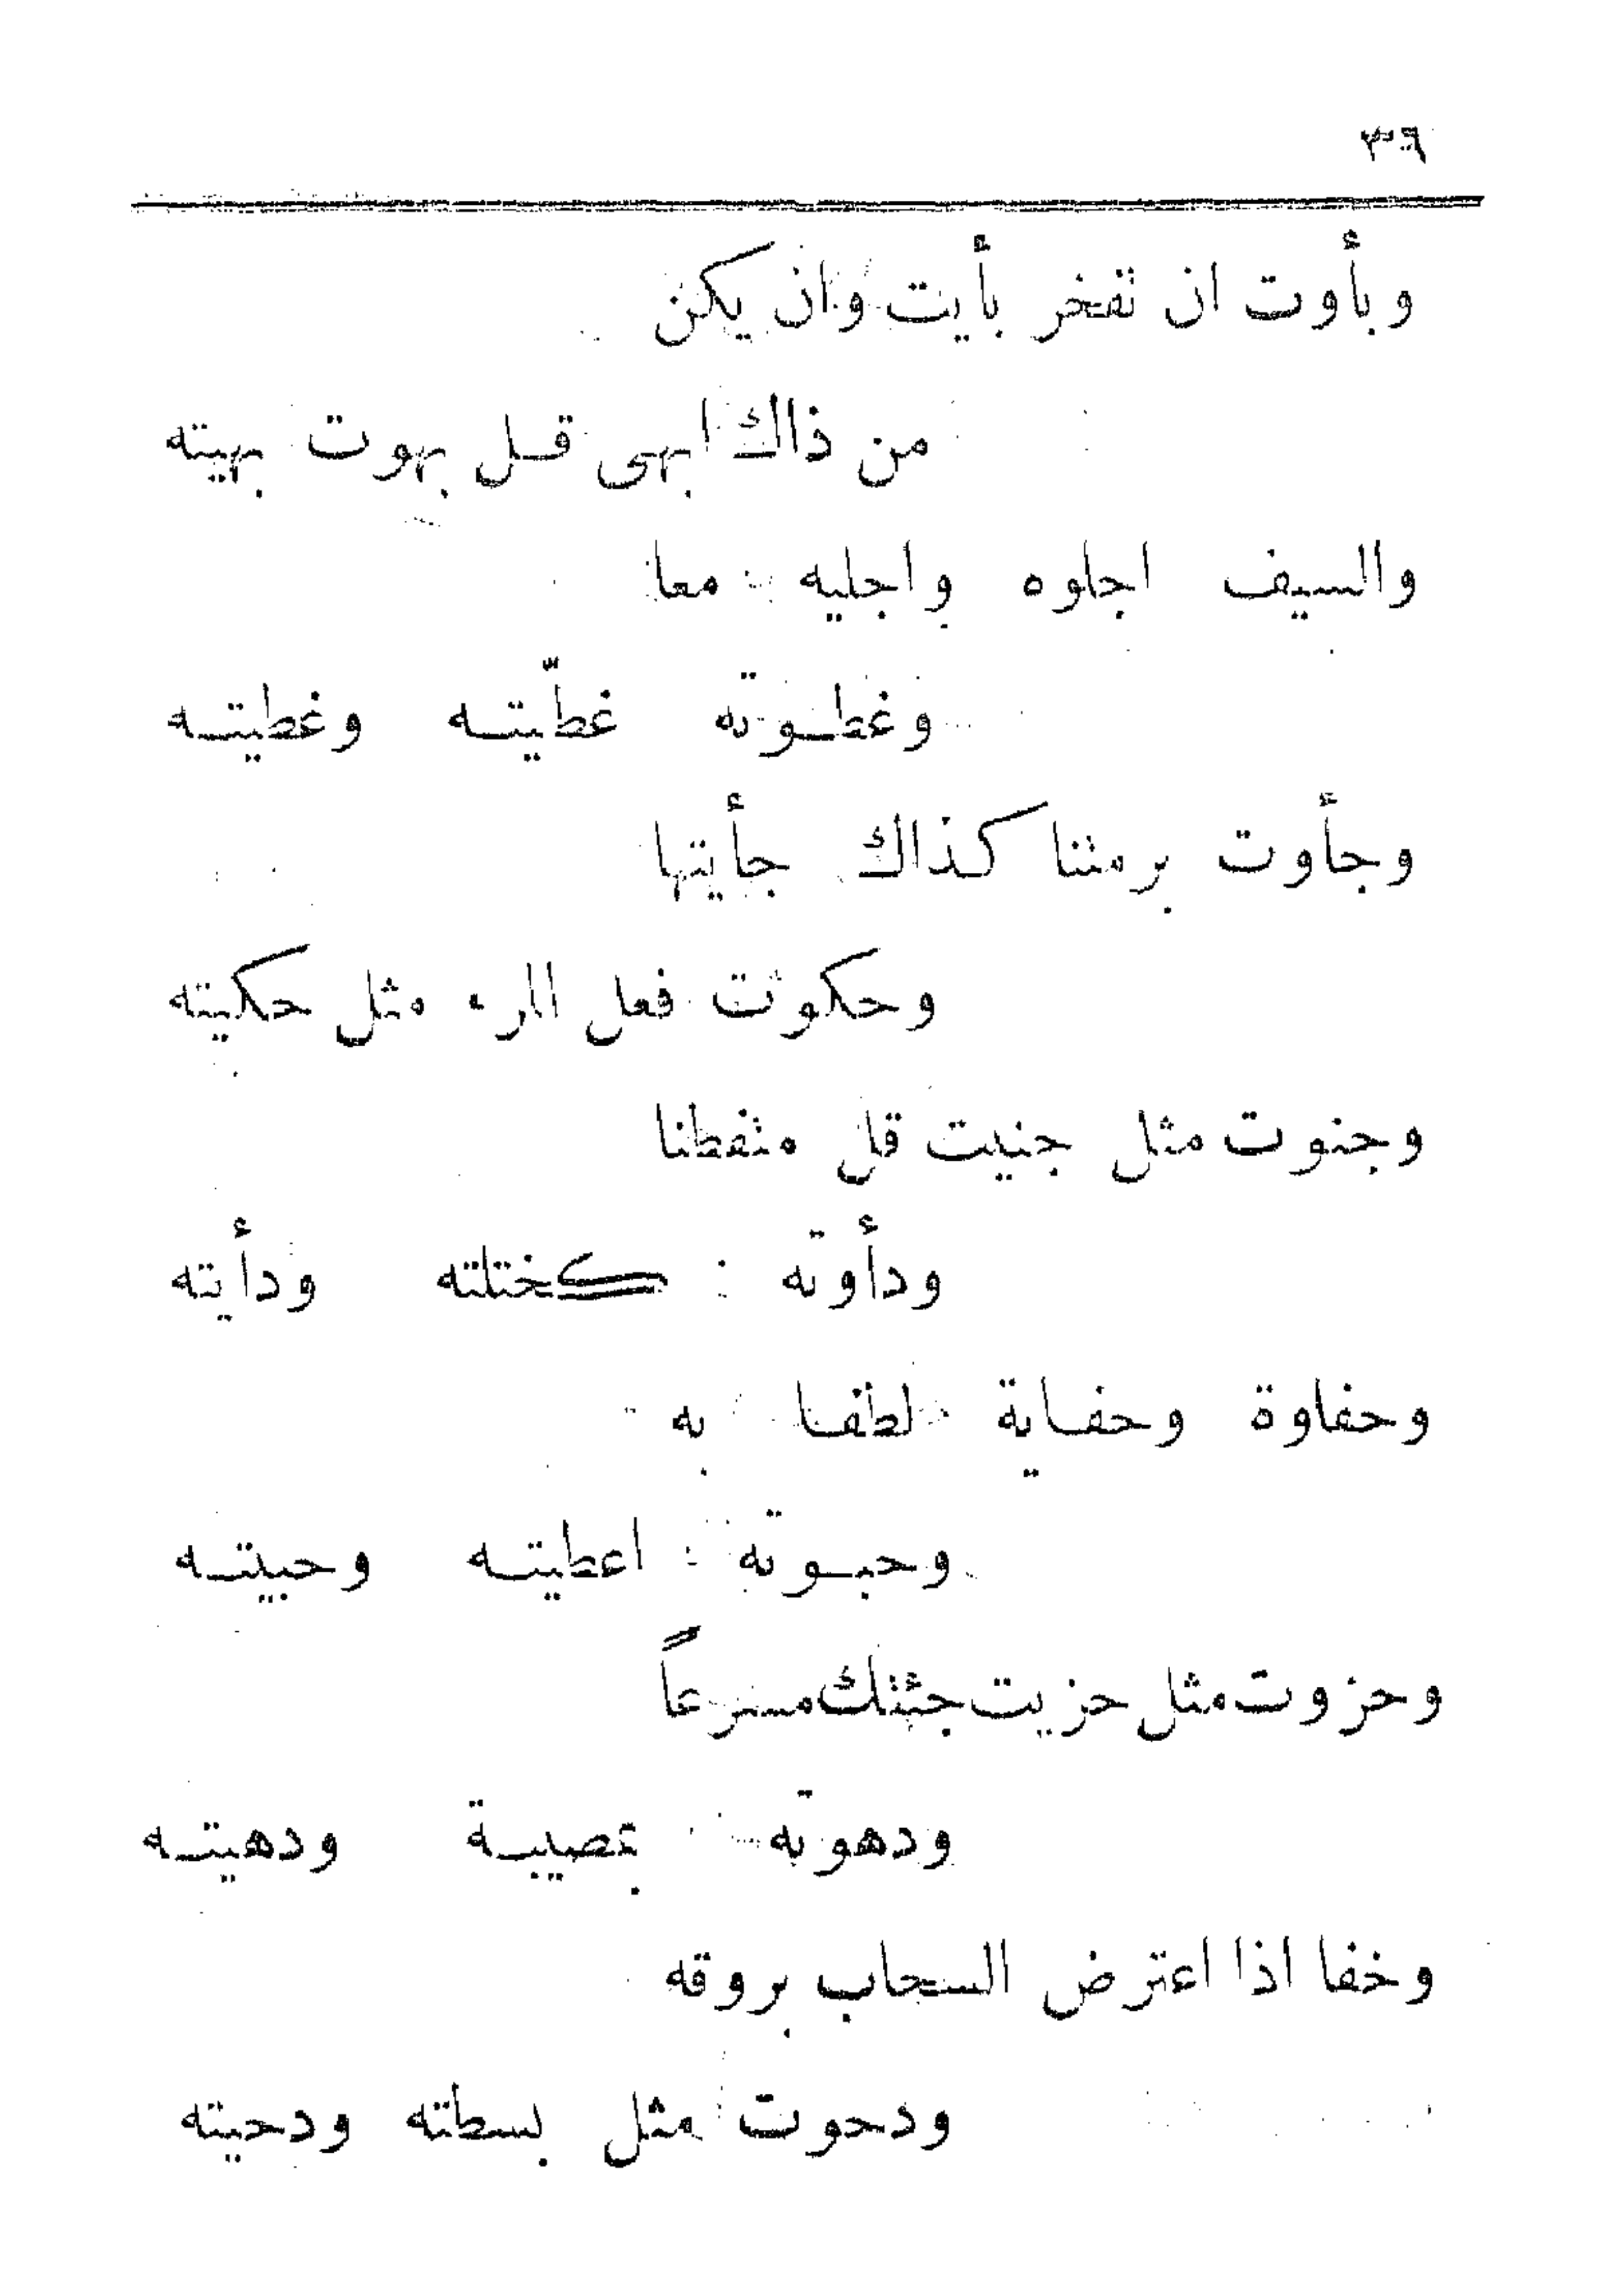 ٣٦
وبأوت ان تفخر بأيت وان يكن
من ذاك ابهى قل بهوت بهيته
والسيف اجلوه واجليه معا
وغطوته غطّيته وغطيته
وجأوت برمثنا كذاك جأيتها
وحكوت فعل المرء مثل حكيته
وجنوت مثل جنيت قل متفطنا
ودأوته : كختلته ودأيته
وحفاوة وحفاية لطفا به
وحبوته : اعطيته وحبيته
وحزوت مثل حزيت جئتك مسرعاً
ودهوته بمصيبة ودهيته
وخفا اذا اعترض السحاب بروقه
ودحوت مثل بسطته ودحيته